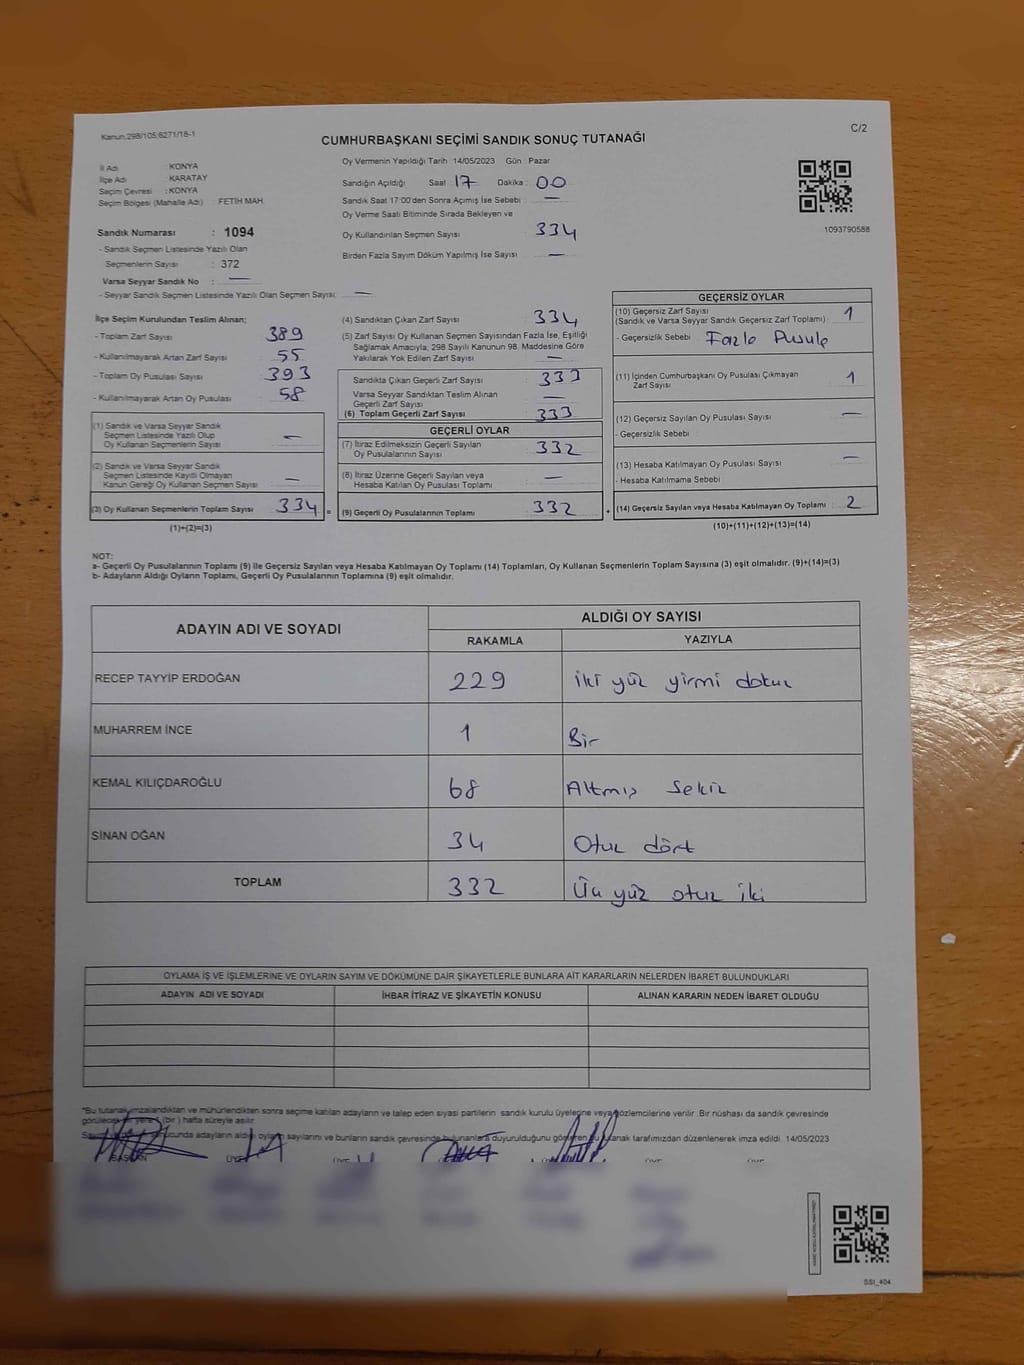 Kanun,298/105;6271/18-1
C/2
CUMHURBAŞKANI SEÇİMİ SANDIK SONUÇ TUTANAĞI
İl Adı : KONYA
İlçe Adı : KARATAY
Seçim Çevresi : KONYA
Seçim Bölgesi (Mahalle Adı) : FETİH MAH.
Sandık Numarası : 1094
- Sandık Seçmen Listesinde Yazılı Olan
Seçmenlerin Sayısı : 372
Varsa Seyyar Sandık No : —
- Seyyar Sandık Seçmen Listesinde Yazılı Olan Seçmen Sayısı: —
Oy Vermenin Yapıldığı Tarih 14/05/2023 Gün : Pazar
Sandığın Açıldığı Saat : 17 Dakika : 00
Sandık Saat 17:00'den Sonra Açımış İse Sebebi : —
Oy Verme Saati Bitiminde Sırada Bekleyen ve
Oy Kullandırılan Seçmen Sayısı : 334
Birden Fazla Sayım Döküm Yapılmış İse Sayısı : —
1093790588
İlçe Seçim Kurulundan Teslim Alınan;
- Toplam Zarf Sayısı : 389
- Kullanılmayarak Artan Zarf Sayısı : 55
- Toplam Oy Pusulası Sayısı : 393
- Kullanılmayarak Artan Oy Pusulası : 58
(1) Sandık ve Varsa Seyyar Sandık
Seçmen Listesinde Yazılı Olup
Oy Kullanan Seçmenlerin Sayısı : —
(2) Sandık ve Varsa Seyyar Sandık
Seçmen Listesinde Kayıtlı Olmayan
Kanun Gereği Oy Kullanan Seçmen Sayısı : —
(3) Oy Kullanan Seçmenlerin Toplam Sayısı : 334 =
(1)+(2)=(3)
(4) Sandıktan Çıkan Zarf Sayısı : 334
(5) Zarf Sayısı Oy Kullanan Seçmen Sayısından Fazla İse, Eşitliği
Sağlamak Amacıyla, 298 Sayılı Kanunun 98. Maddesine Göre
Yakılarak Yok Edilen Zarf Sayısı : —
Sandıkta Çıkan Geçerli Zarf Sayısı : 333
Varsa Seyyar Sandıktan Teslim Alınan
Geçerli Zarf Sayısı : —
(6) Toplam Geçerli Zarf Sayısı : 333
GEÇERLİ OYLAR
(7) İtiraz Edilmeksizin Geçerli Sayılan
Oy Pusulalarının Sayısı : 332
(8) İtiraz Üzerine Geçerli Sayılan veya
Hesaba Katılan Oy Pusulası Toplamı : —
(9) Geçerli Oy Pusulalarının Toplamı : 332 +
GEÇERSİZ OYLAR
(10) Geçersiz Zarf Sayısı
(Sandık ve Varsa Seyyar Sandık Geçersiz Zarf Toplamı) : 1
- Geçersizlik Sebebi : Fazla Pusula
(11) İçinden Cumhurbaşkanı Oy Pusulası Çıkmayan
Zarf Sayısı : 1
(12) Geçersiz Sayılan Oy Pusulası Sayısı : —
- Geçersizlik Sebebi :
(13) Hesaba Katılmayan Oy Pusulası Sayısı : —
- Hesaba Katılmama Sebebi :
(14) Geçersiz Sayılan veya Hesaba Katılmayan Oy Toplamı : 2
(10)+(11)+(12)+(13)=(14)
NOT:
a- Geçerli Oy Pusulalarının Toplamı (9) ile Geçersiz Sayılan veya Hesaba Katılmayan Oy Toplamı (14) Toplamları, Oy Kullanan Seçmenlerin Toplam Sayısına (3) eşit olmalıdır. (9)+(14)=(3)
b- Adayların Aldığı Oyların Toplamı, Geçerli Oy Pusulalarının Toplamına (9) eşit olmalıdır.
ADAYIN ADI VE SOYADI
ALDIĞI OY SAYISI
RAKAMLA YAZIYLA
RECEP TAYYİP ERDOĞAN 229 iki yüz yirmi dokuz
MUHARREM İNCE 1 Bir
KEMAL KILIÇDAROĞLU 68 Altmış Sekiz
SİNAN OĞAN 34 Otuz dört
TOPLAM 332 Üç yüz otuz iki
OYLAMA İŞ VE İŞLEMLERİNE VE OYLARIN SAYIM VE DÖKÜMÜNE DAİR ŞİKAYETLERLE BUNLARA AİT KARARLARIN NELERDEN İBARET BULUNDUKLARI
ADAYIN ADI VE SOYADI İHBAR İTİRAZ VE ŞİKAYETİN KONUSU ALINAN KARARIN NEDEN İBARET OLDUĞU
"Bu tutanak imzalandıktan ve mühürlendikten sonra seçime katılan adayların ve talep eden siyasi partilerin sandık kurulu üyelerine veya gözlemcilerine verilir. Bir nüshası da sandık çevresinde
görülecek bir yere 1 (bir) hafta süreyle asılır.
Sayım sonucunda adayların aldığı oyların sayılarını ve bunların sandık çevresinde bulunanlara duyurulduğunu gösteren bu tutanak tarafımızdan düzenlenerek imza edildi. 14/05/2023
BAŞKAN ÜYE ÜYE ÜYE ÜYE
SSI_404